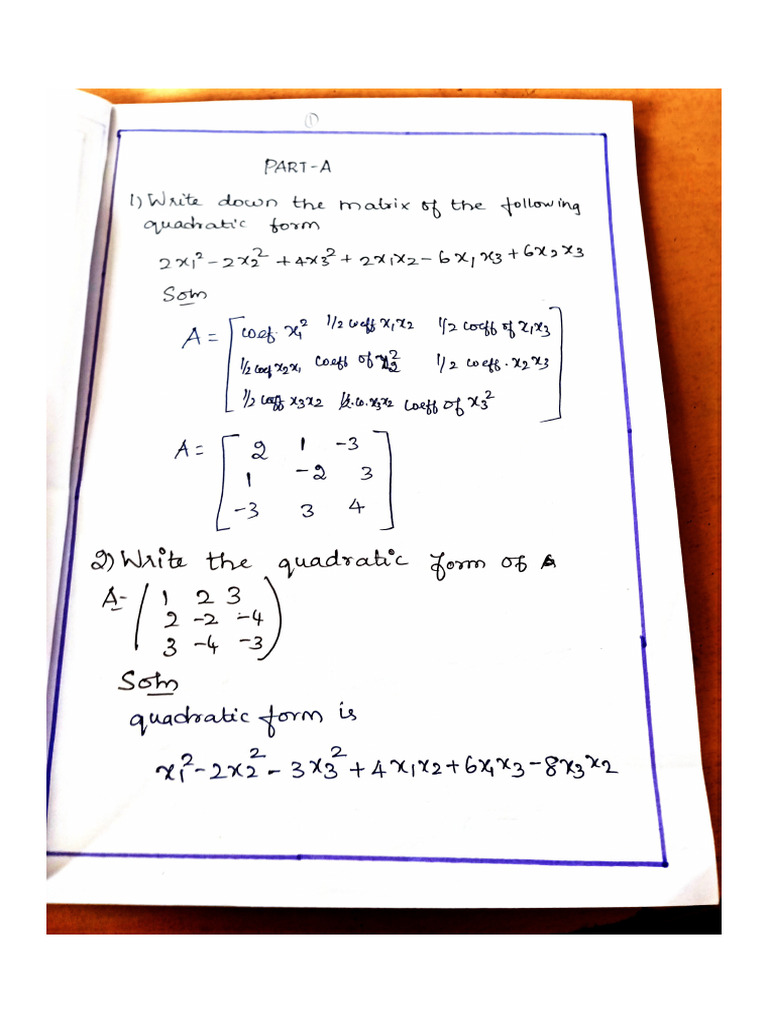 ①
PART-A
1) Write down the matrix of the following
quadratic form
2x₁² - 2x₂² + 4x₃² + 2x₁x₂ - 6x₁x₃ + 6x₂x₃
Soln
A = [coef. x₁² 1/2 coeff x₁x₂ 1/2 coeff of x₁x₃
1/2 coef x₂x₁ coeff of x₂² 1/2 coeff. x₂x₃
1/2 coeff x₃x₂ 1/2.co.x₃x₂ coeff of x₃²]
A = [2 1 -3
1 -2 3
-3 3 4]
2) Write the quadratic form of
A = (1 2 3
2 -2 -4
3 -4 -3)
Soln
quadratic form is
x₁² - 2x₂² - 3x₃² + 4x₁x₂ + 6x₁x₃ - 8x₃x₂